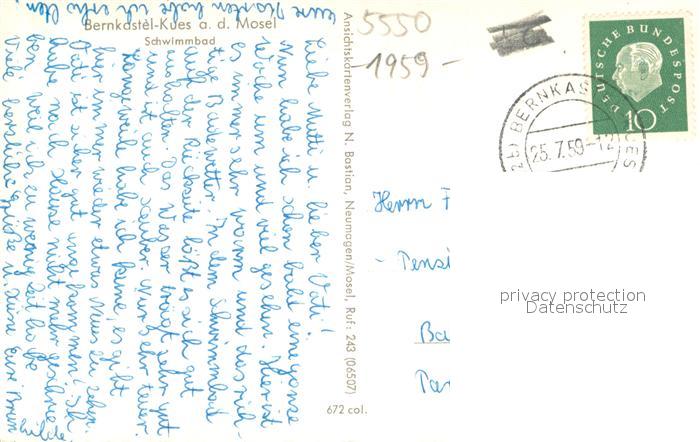 Bernkastel-Kues a. d. Mosel
Schwimmbad
Eure Karten habe ich erhalten.
Liebe Mutti u. lieber Vati!
Nun habe ich schon bald eine ganze
Woche um und viel gesehen. Hier ist
es immer sehr warm und das rich-
tige Badewetter. In dem Schwimmbad
auf der Rückseite läßt es sich gut
aushalten. Das Wasser trägt sehr gut
und ist auch sauber nur sehr teuer.
Langeweile habe ich keine, es gibt
hier immer wieder etwas Neues zu sehen.
Vati ist sicher gut angekommen! Ich
habe nach Hause nicht mehr geschrie-
ben weil ich zu wenig Zeit habe
Viele herzliche Grüße u. Küsse Eure Brunhilde
Ansichtskartenverlag N. Bastian, Neumagen/Mosel, Ruf: 243 (06507)
672 col.
5550
-1959-
DEUTSCHE BUNDESPOST
10
BERNKAS
UES
25.7.59-12
Herrn F
- Pensi
Ba
Par
privacy protection
Datenschutz